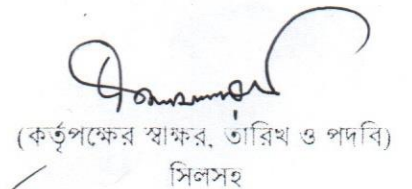 (কর্তৃপক্ষের স্বাক্ষর, তারিখ ও পদবি)
সিলসহ